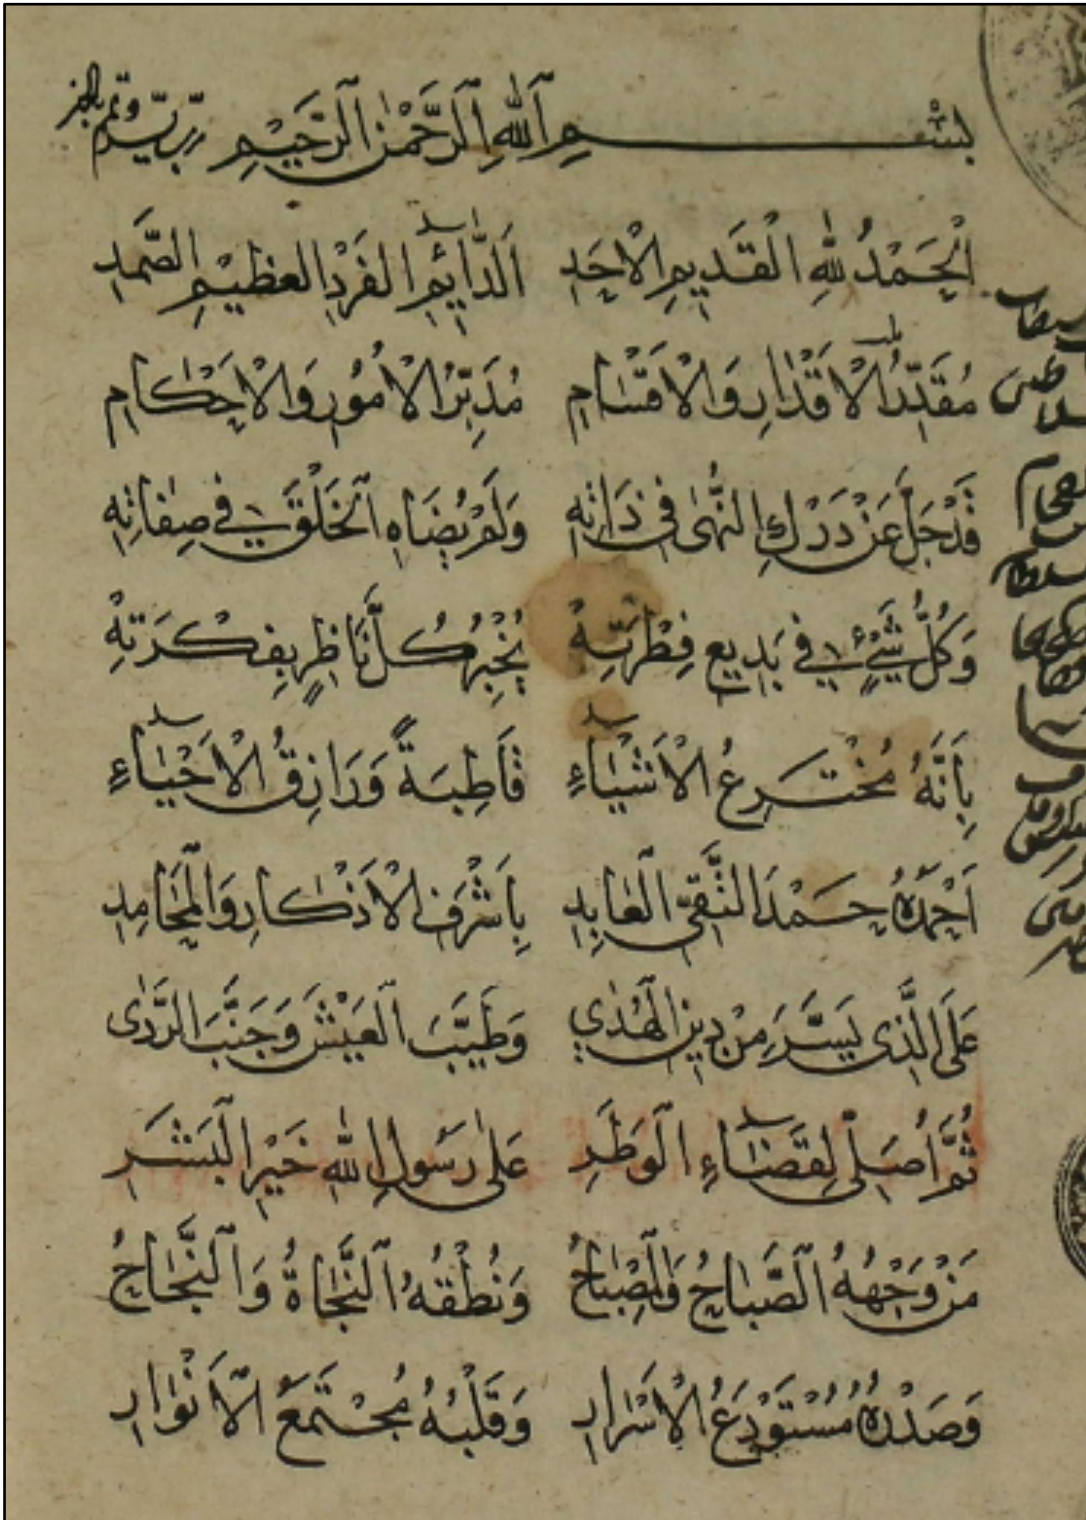 بِسْمِ اللّٰهِ الرَّحْمٰنِ الرَّحِيْمِ رب يسر وتمم بالخير
اَلْحَمْدُ لِلّٰهِ الْقَدِيمِ الْاَحَدِ اَلدَّائِمِ الفَرْدِ العَظِيْمِ الصَّمَدِ
مُقَدِّرُ الْاَقْدَارِ وَالْاَقْسَامِ مُدَبِّرُ الْاُمُورِ وَالْاَحْكَامِ
قَدْ جَلَّ عَنْ دَرْكِ النُّهٰى فِى ذَاتِهِ وَلَمْ يُضَاهِ الْخَلْقَ فِي صِفَاتِهِ
وَكُلُّ شَيْءٍ فِي بَدِيعِ فِطْرَتِهْ يُخْبِرُ كُلَّ نَاظِرٍ بِفِكْرَتِهْ
بِاَنَّهُ مُخْتَرِعُ الْاَشْيَاءِ قَاطِبَةً وَرَازِقُ الْاَحْيَاءِ
اَحْمَدُهُ حَمْدَ التَّقِىِّ الْعَابِدِ بِاَشْرَفِ الْاَذْكَارِ وَالْمَحَامِدِ
عَلَى الَّذِى يَسَّرَ مِنْ دِينِ الْهُدٰي وَطَيَّبَ الْعَيْشَ وَجَنَّبَ الرَّدٰى
ثُمَّ اُصَلِّى لِقَضَاءِ الْوَطَرِ عَلٰى رَسُولِ اللّٰهِ خَيْرِ الْبَشَرِ
مَنْ وَجْهُهُ الصَّبَاحُ وَالْمِصْبَاحُ وَنُطْقُهُ النَّجَاةُ وَالنَّجَاحُ
وَصَدْرُهُ مُسْتَوْدَعُ الْاَسْرَارِ وَقَلْبُهُ مُجْتَمَعُ الْاَنْوَارِ